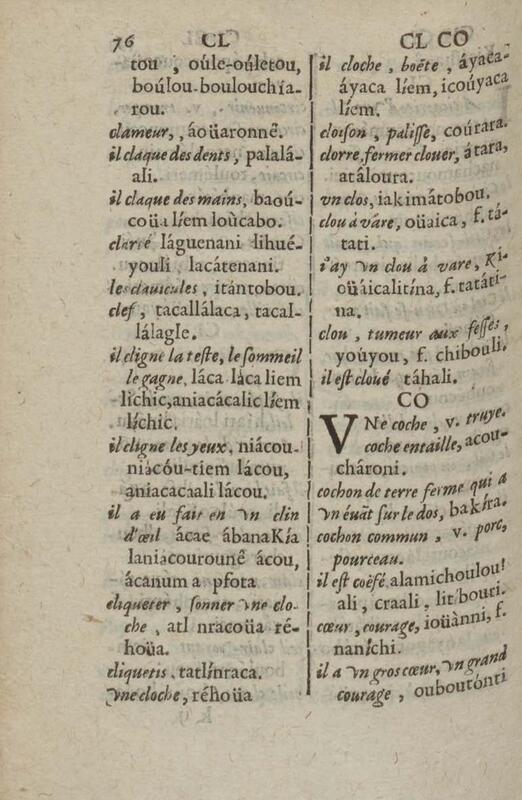 76 CL
tou, oúle-oúletou,
boúlou-boulouchía-
rou.
clameur, , áoüaronnê.
il claque des dents, palalá-
ali.
il claque des mains, baoú-
coüa líem loùcabo.
clarté láguenani lihué-
youli lacátenani.
les clauicules, itántobou.
clef, tacallálaca, tacal-
lálagle.
il cligne la teste, le sommeil
le gagne, láca láca liem
lichic, aniacácalic líem
líchic.
il cligne les yeux, niácou-
niàcóu-tiem lácou,
aniacacaali lácou.
il a eu fait en vn clin
d'œil ácae ábanaKía
laniacourounê ácou,
ácanum a pfota
cliqueter, sonner vne clo-
che, atl nracoüa ré-
hoüa.
cliquetis. tatlínraca.
vne cloche, réhoüa
CL CO
il cloche, boëte, áyaca-
áyaca líem, icoúyaca
líem.
cloison, palisse, coúrara.
clorre, fermer clouer, átara,
atáloura.
vn clos, iakimátobou.
clou à vare, oüaica, f. tá-
tati.
i'ay vn clou à vare, Ki-
oüáicalitína, f. tatáti-
na.
clou, tumeur aux fesses,
yoúyou, f. chibouli.
il est cloué táhali.
CO
VNe coche, v. truye.
coche entaille, acou-
chároni.
cochon de terre ferme qui a
vn éuãt sur le dos, bakíra.
cochon commun, v. porc,
pourceau.
il est coëfé, alamichoulou!
ali, craali, lit bouri.
cœur, courage, ioüànni, f.
naníchi.
il a vn gros cœur, vn grand
courage, ouboutónti